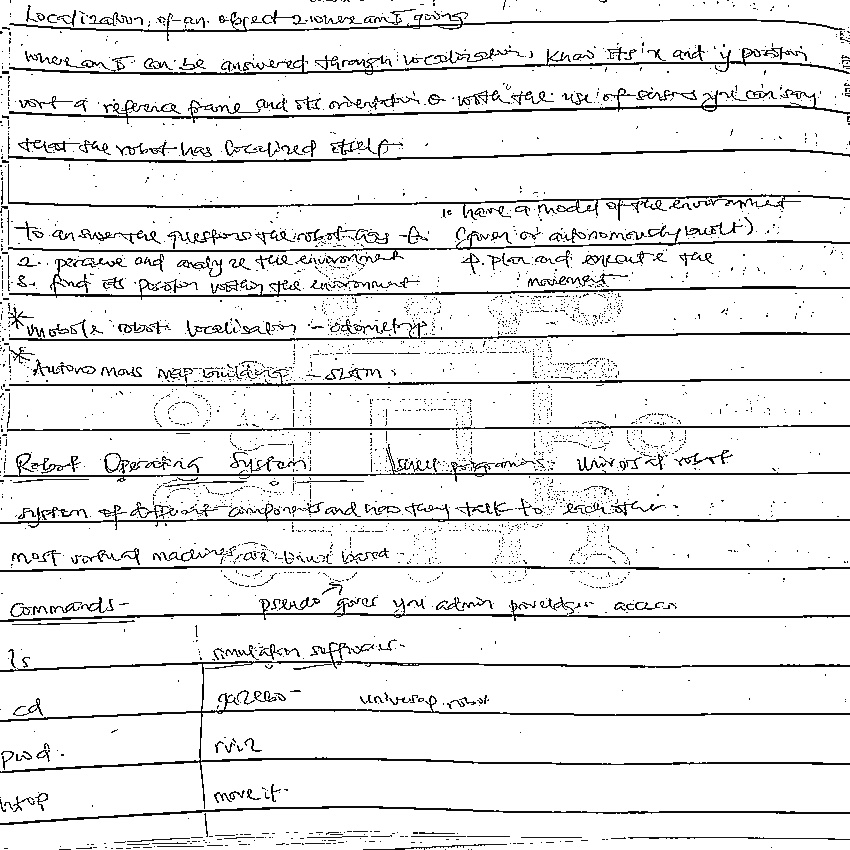 Localization, of an object 2. where am I going
where am I can be answered through localization, know its x and y position
wrt a reference frame and its orientation θ with the use of sensors you can say
that the robot has localized itself
to answer the questions the robot has to
1. have a model of the environment
(given or autonomously built)
2. perceive and analyze the environment
3. find its position within the environment
4. plan and execute the
movement
* mobile robot localisation - odometry
* Autonomous map building - SLAM.
Robot Operating System
programs. Universal robot
system of different components and how they talk to each other.
most virtual machines are linux based
Commands - pseudo gives you admin access
ls simulation software.
cd gazebo - universal robot
pwd. rviz
htop move it.